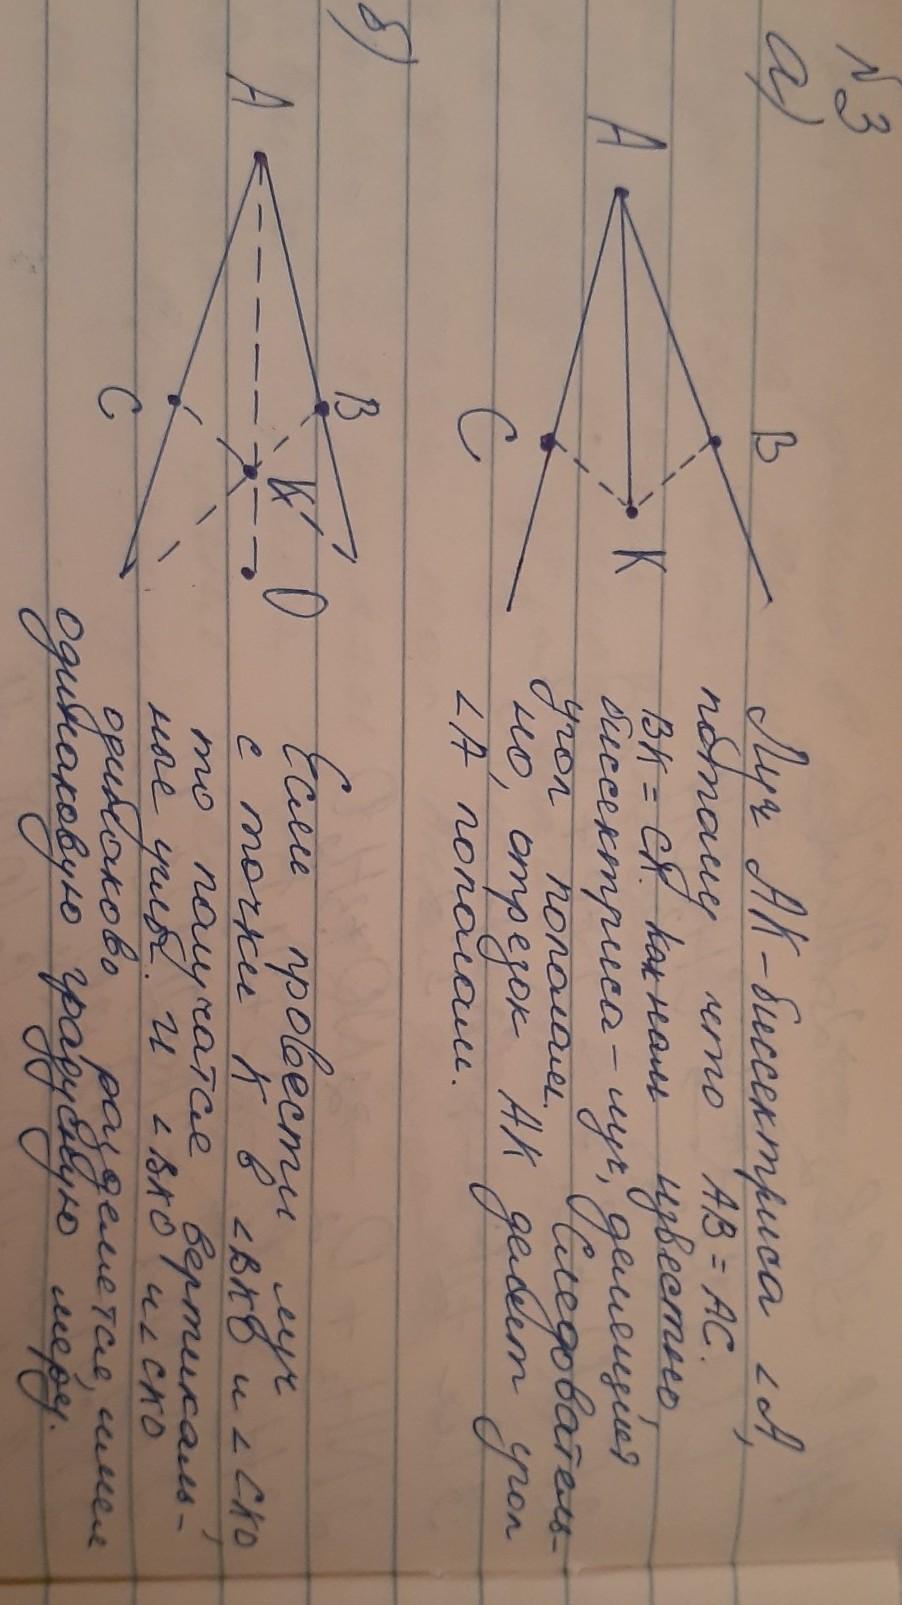 N3
а)
A
B
C
K
Луч АК-биссектриса <А,
потому что АВ = АС.
ВК = СК. Как нам известно,
биссектриса - луч, делещия
угол пополам. Следователь-
но, отрезок АК делет угол
<А пополам.
б)
A
B
C
K
O
Если провести луч
с точки К в <ВКО и <СКО
то получатся вертикаль-
ные углы. И <ВКО и <СКО
одинаково разделетса,
одинаковую градусную меру.